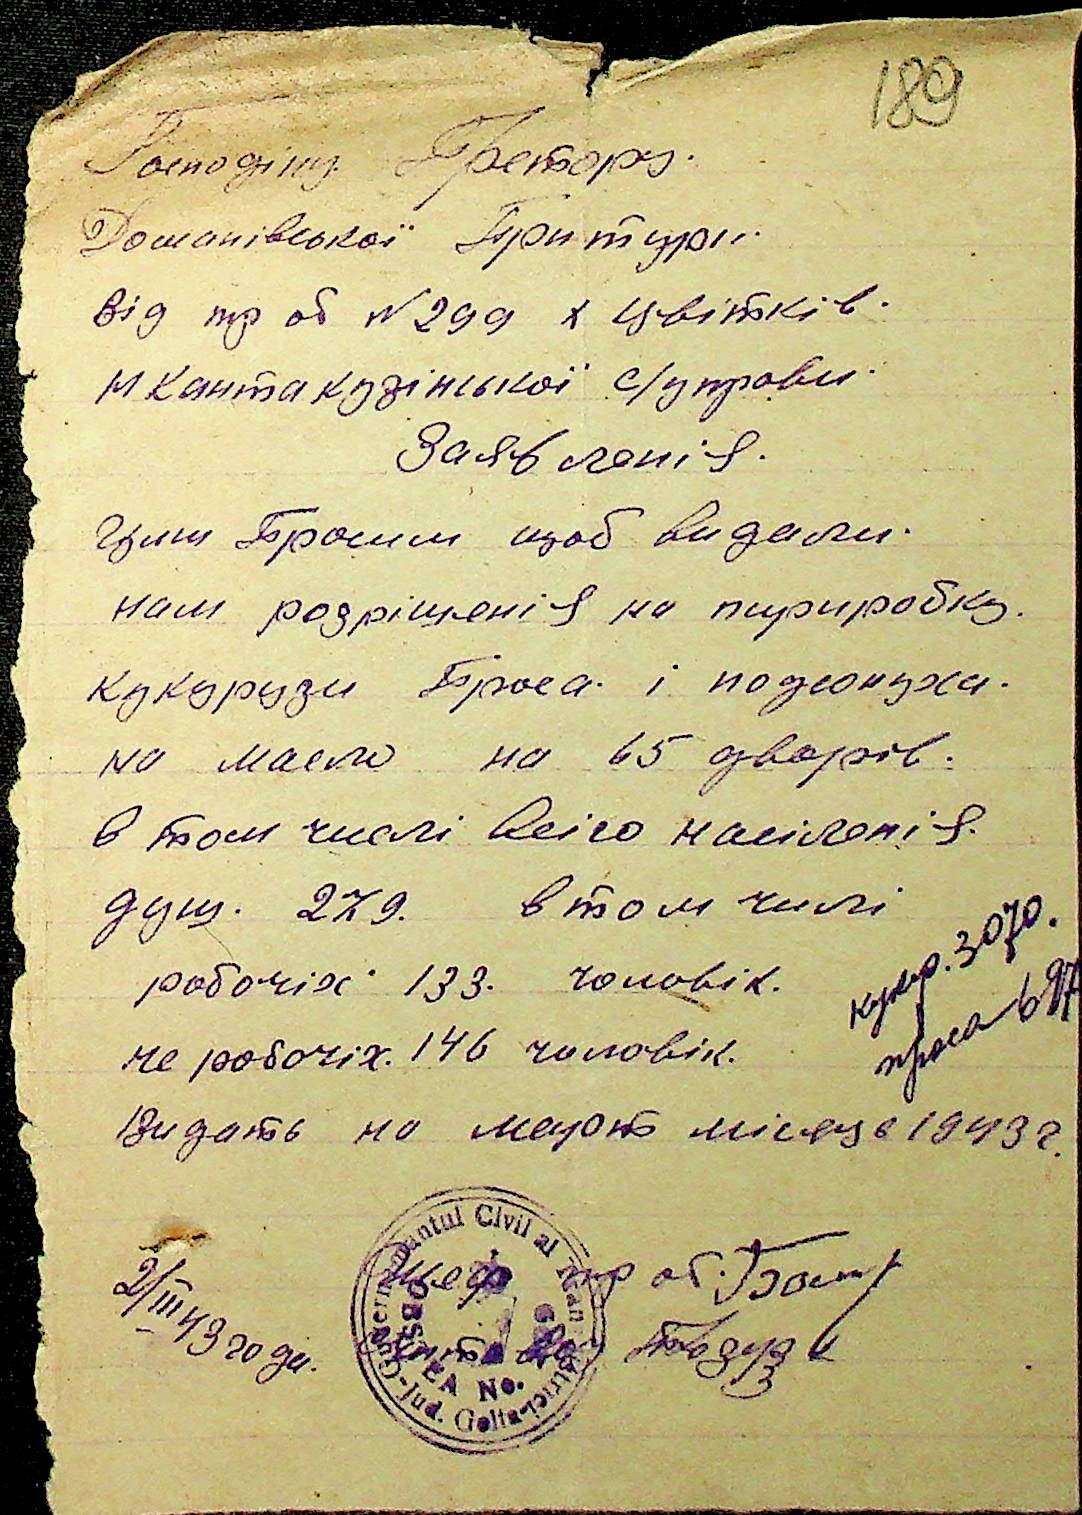 189
Господіну Претору.
Доманівської Притури.
Від тр об №299 х Цвітків.
Н Кантакузінської с/управи.
Заявленія.
Цим Просим щоб видали.
нам розріщенія на пириробку.
кукурузи Проса. і подсонуха.
на масло на 65 дворів.
в том числі всіго насіленія.
душ. 279. в том числі
робочіх 133. чоловік.
не робочіх. 146 чоловік.
Видать на март місяць 1943 г.
кукур. 3070.
проса 697
2/III 43 года.
Шеф тр об.
Guvernamantul Civil al Tran
Jud. Golta
OBSTEA No.